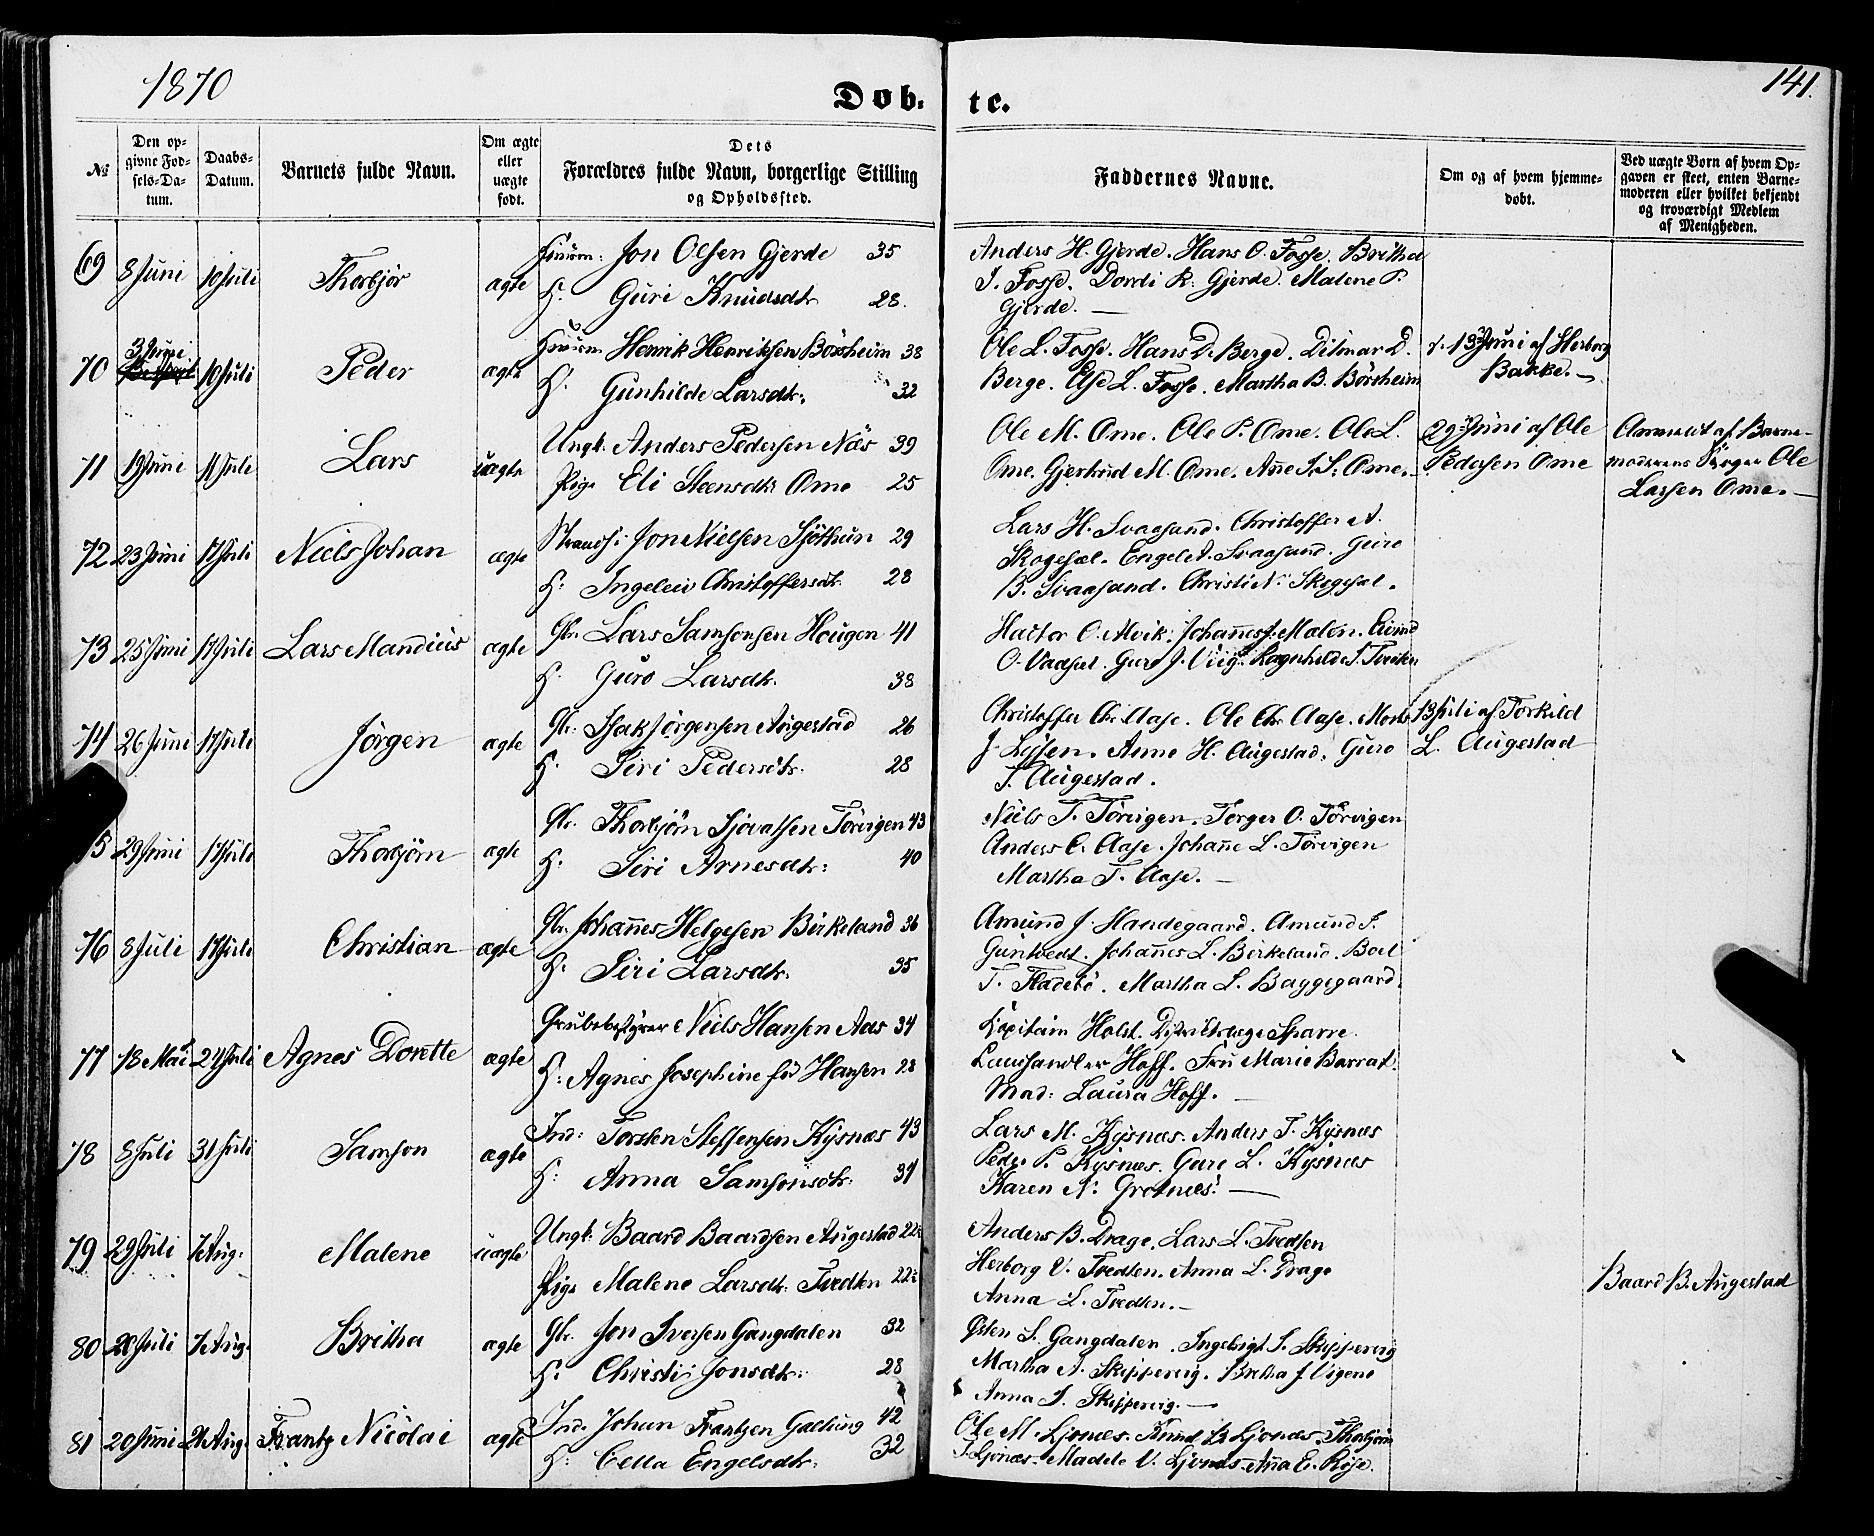 1870
Dob. te.
141.
№
Den opgivne Fodsels-Datum.
Daabs-Datum.
Barnets fulde Navn.
Om ægte eller uægte født.
Dets Forældres fulde Navn, borgerlige Stilling og Opholdssted.
Faddernes Navne.
Om og af hvem hjemmedobt.
Ved uægte Born af hvem Opgaven er skeet, enten Barnemoderen eller hvilket bekjendt og troværdigt Medlem af Menigheden.
69 8 Juni 10 Juli Thorbjør ægte
Huusm: Jon Olsen Gjerde 35
H. Guri Knudsdtr. 28.
Anders H. Gjerde. Hans O. Fosse. Britha
I. Fosse. Dordi K. Gjerde. Malene P.
Gjerde. —
70 3 Juni 10 Juli Peder ægte
Huusm. Henrik Henriksen Börsheim 38
H. Gunhilde Larsdtr. 32
Ole L. Fosse. Hans D. Berge. Ditmar D.
Berge. Else L. Fosse. Martha B. Börsheim
13 Juni af Herborg
Bakke. —
71 19 Juni 11 Juli Lars uægte
Ungk. Anders Pedersen Näs 39
Pige Eli Steensdtr. Ome 25
Ole M. Ome. Ole P. Ome. Ole L.
Ome. Gjertrud M. Ome. Anne I. S. Ome. —
29 Juni af Ole
Pedersen Ome
Anmeldt af Barne-
moderens Svoger Ole
Larsen Ome. —
72 23 Juni 17 Juli Niels Johan ægte
Strands: Jon Nielsen Sjöthun 29
H: Ingeleiv Christoffersdtr. 28
Lars H. Svaasand. Christoffer A.
Skogesæl. Engel A. Svaasand. Guro
B. Svaasand. Christi N. Skogesæl.
73 25 Juni 17 Juli Lars Mandius ægte
Gbr. Lars Samsonsen Hougen 41
H. Guro Larsdtr. 38
Hactor O. Mvik. Johannes J. Malen. Eivind
O. Vadsel. Guro J. Viig. Ragnhilde T. Tveiten
74 26 Juni 17 Juli Jörgen ægte
Gbr. Isak Jörgensen Augestad 26
H. Siri Pedersdtr. 28
Christoffer Chr. Aase. Ole Chr. Aase. Mons
J. Lussen. Anna H. Augestad. Guro
I. Augestad.
13 Juli af Torkild
L. Augestad
75 29 Juni 17 Juli Thorbjörn ægte
Gbr. Thorbjörn Sjovatsen Törvigen 43
H. Siri Arnesdtr: 40
Niels T. Törvigen. Torger O. Törvigen
Anders C. Aase. Johanne L. Törvigen
Martha T. Aase. —
76 8 Juli 17 Juli Christian ægte
Gbr. Johannes Helgesen Birkeland 36
H. Siri Larsdtr. 35
Amund J. Handegaard. Amund I.
Guntvedt. Johannes L. Birkeland. Boel
T. Fladebö. Martha L. Baggegaard.
77 18 Mai 24 Juli Agnes Dorette ægte
Grubebestyrer Niels Hansen Aas 34
H: Agnes Josephine fød Hansen 28
Kapitain Holst. Distriktslæge Sparre.
Landhandler Hoff. Fru Marie Barrat.
Mad: Laura Hoff. —
78 8 Juli 31 Juli Samson ægte
Ind: Torsten Steffensen Kysnæs 43
H: Anna Samsonsdtr. 34
Lars M. Kysnæs. Anders T. Kysnæs
Peder P. Kysnæs. Guro L. Kysnæs
Karen N. Grotnæs. —
79 29 Juli 7 Aug: Malene uægte
Ungk. Baard Baardsen Augestad 22
Pige Malene Larsdtr. Tvedten 22½
Anders B. Drage. Lars L. Tvedten
Herborg V. Tvedten. Anna L. Drage
Anna L. Tvedten. —
Baard B. Augestad
80 28 Juli 7 Aug. Britha ægte
Gbr. Jon Iversen Gangdalen 32
H: Christi Jonsdtr. 28
Østen S. Gangdalen. Ingebrigt I. Skippervig
Martha A. Skippervig. Britha J. Vigene
Anna I. Skippervig. —
81 20 Juni 21 Aug. Frantz Nicolai ægte
Ind. Johan Frantzen Galtung 42
H: Cella Engelsdtr. 32
Ole M. Ljonæs. Knud B. Ljonæs. Thorbjörn
T. Ljonæs. Madele V. Ljonæs. Anna E. Röse.